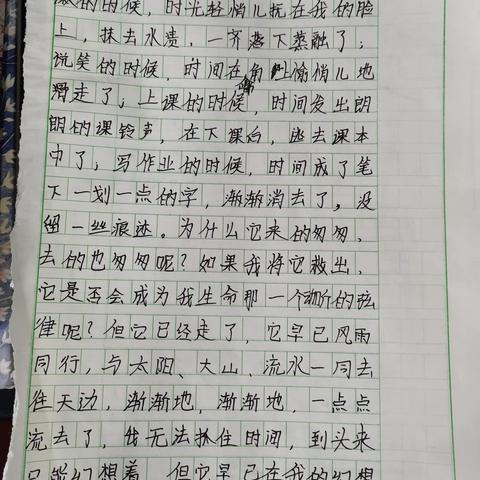 的时候，时光轻悄儿抚在我的脸
上，抹去水渍，一齐落下蒸融了；
说笑的时候，时间在角上偷悄儿地
滑走了；上课的时候，时间发出朗
朗的课铃声，在下课后，逃去课本
中了；写作业的时候，时间成了笔
下一划一点的字，渐渐消去了，没
留一丝痕迹。为什么它来的匆匆，
去的也匆匆呢？如果我将它救出，
它是否会成为我生命那一个崭的弦
律呢？但它已经走了，它早已风雨
同行，与太阳、大山、流水一同去
往天边，渐渐地，渐渐地，一点点
流去了，我无法抓住时间，到头来
只能幻想着，但它早已在我的幻想